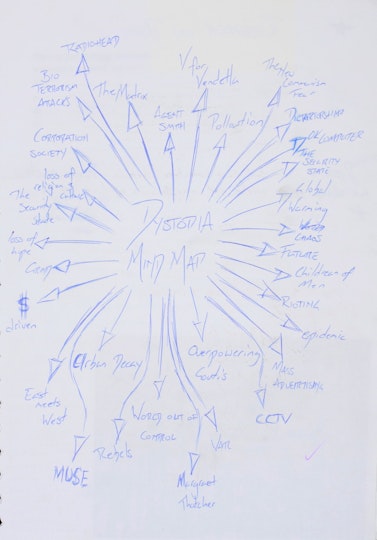 RADIOHEAD
V for
Vendetta
Bio
Terrorism
Attacks
The Matrix
Agent
Smith
Pollution
Dictatorship
OK COMPUTER
Corporation
Society
THE
SECURITY
STATE
loss of
religion & culture
The
Security
State
Global
Warming
DYSTOPIA
MIND MAP
CHAOS
loss of
hope
FUTURE
Greed
Children of
Men
$
driven
RIOTING
epidemic
Urban Decay
Overpowering
Gov't's
Mass
Advertising
East
meets
West
Rebels
WORLD OUT OF
CONTROL
War
CCTV
MUSE
Margaret
Thatcher